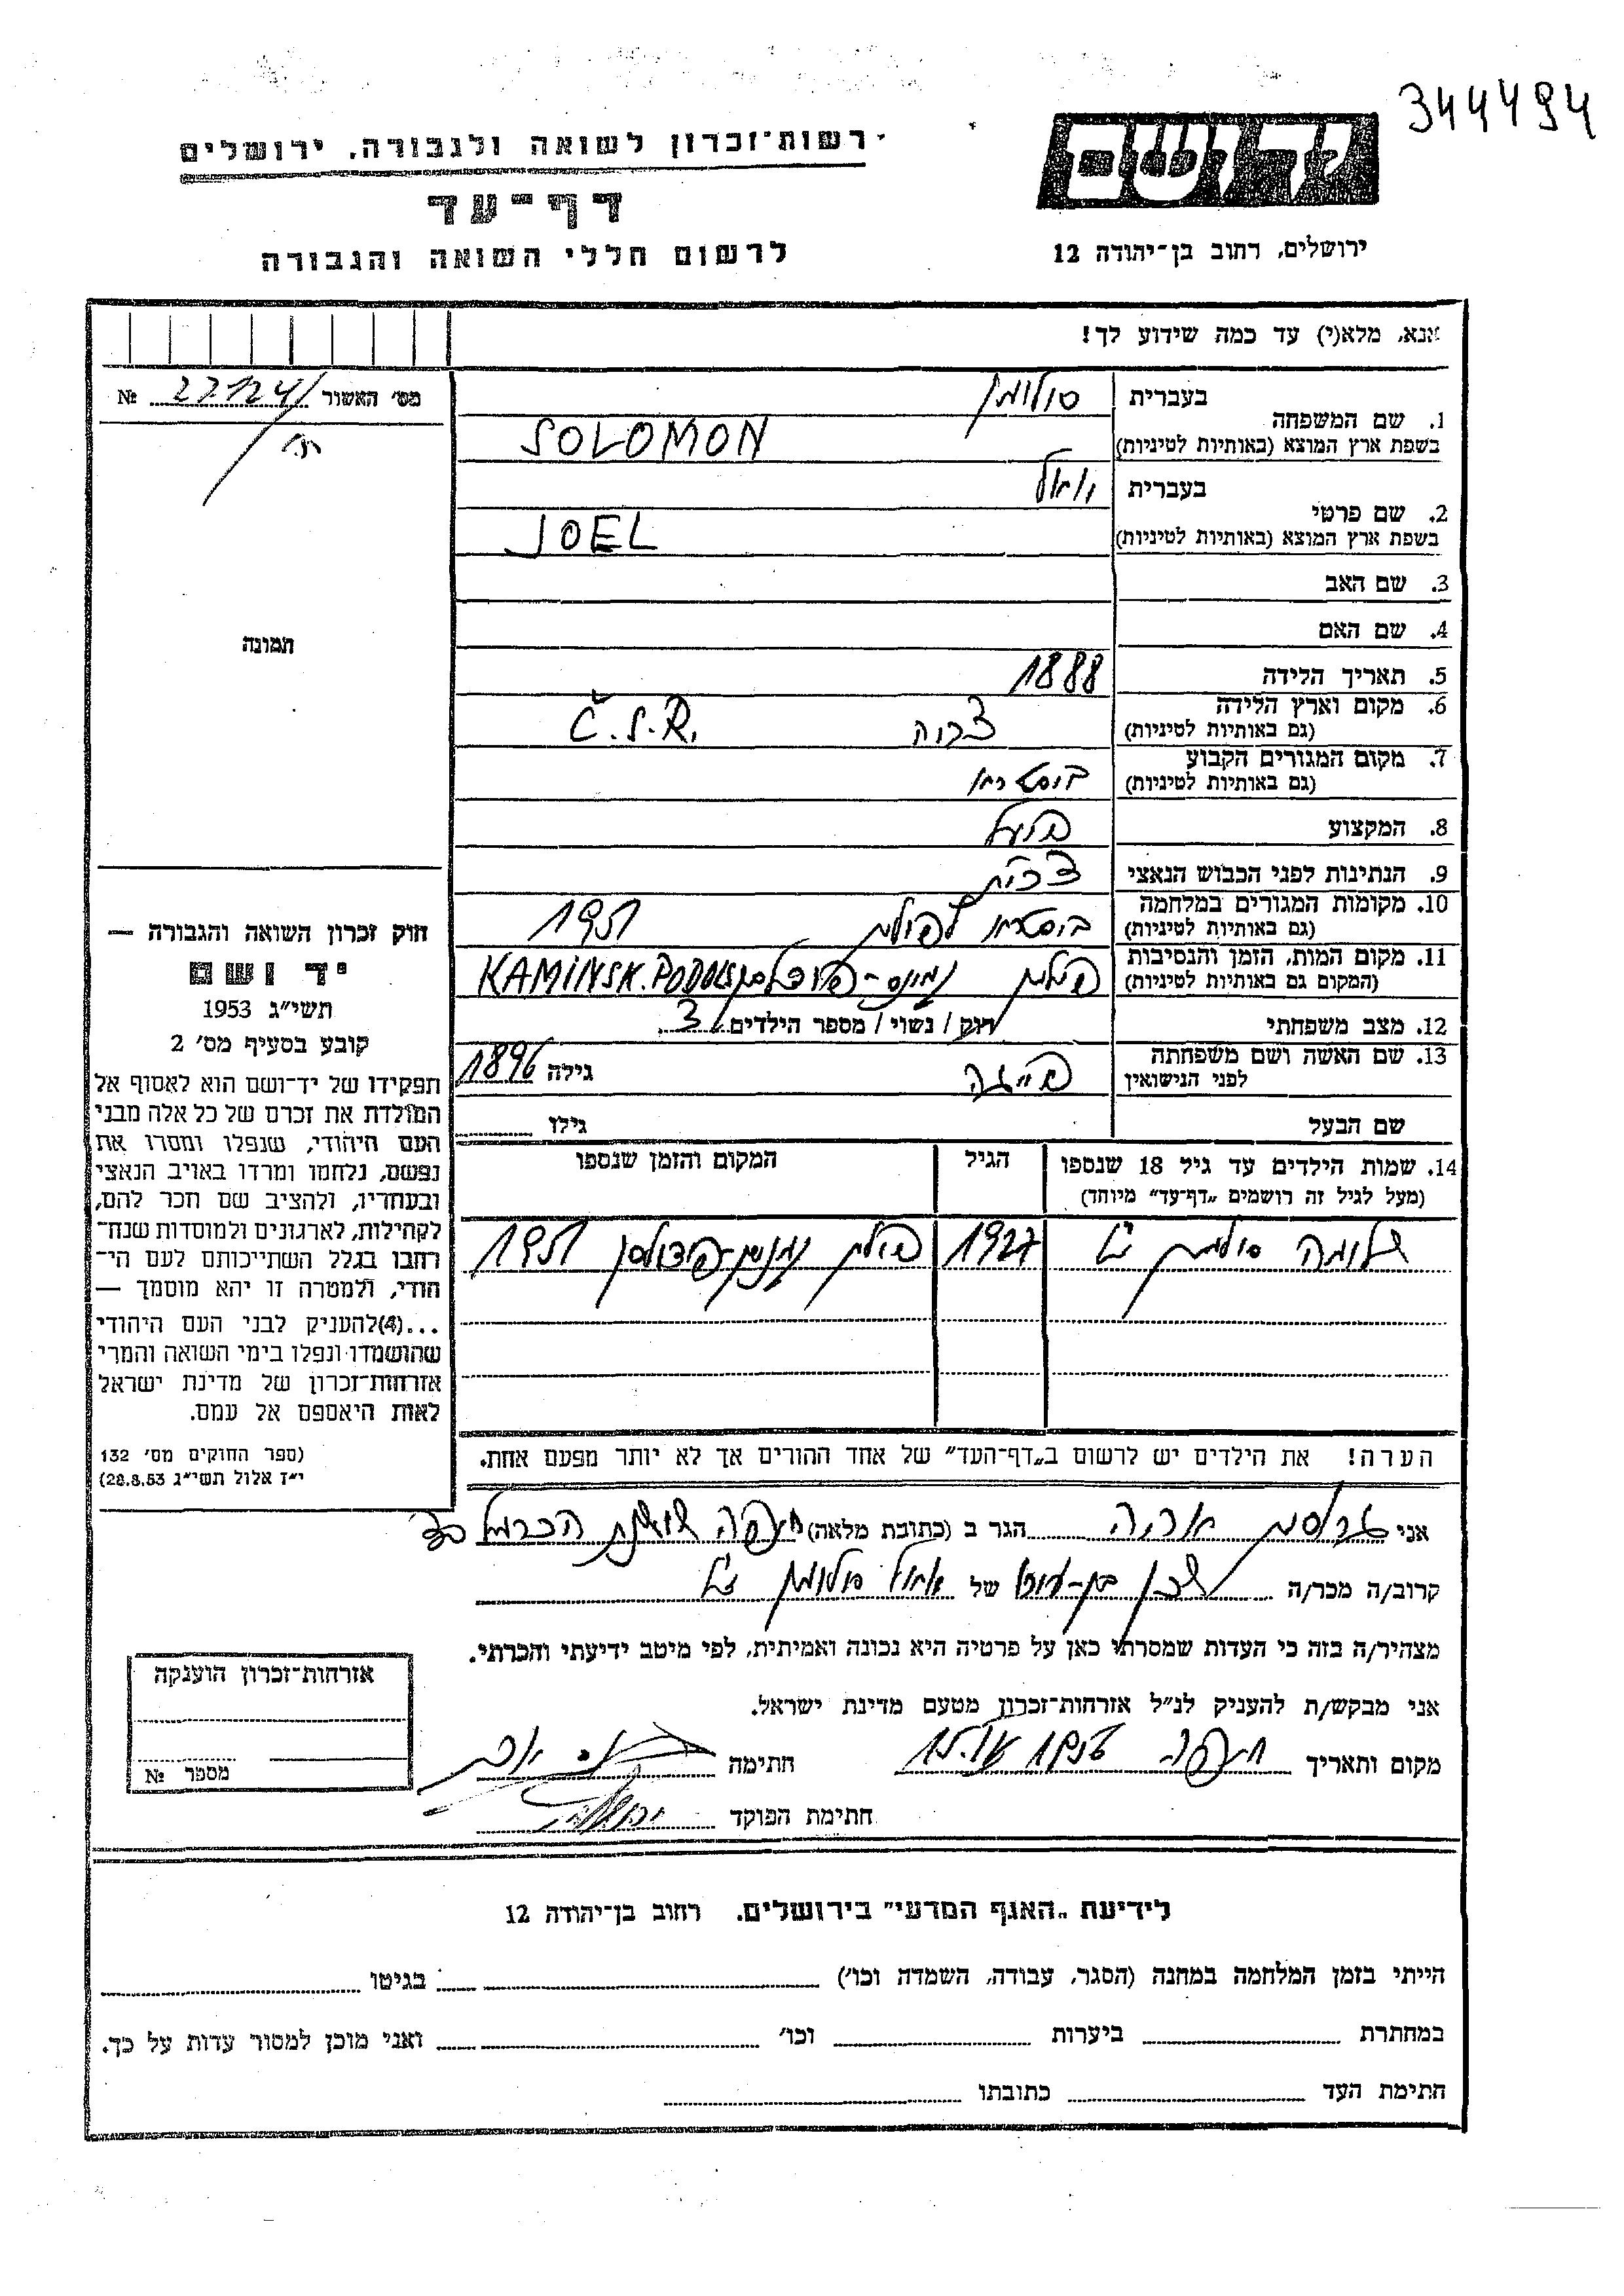 344494
ידושם
רשות־זכרון לשואה ולגבורה, ירושלים
דף־עד
לרשום חללי השואה והגבורה
ירושלים, רחוב בן־יהודה 12
אנא, מלא(י) עד כמה שידוע לך!
מס׳ האשור № 22124/
1. שם המשפחה
בעברית סולומון
בשפת ארץ המוצא (באותיות לטיניות) SOLOMON
2. שם פרטי
בעברית יואל
בשפת ארץ המוצא (באותיות לטיניות) JOEL
3. שם האב
4. שם האם
תמונה
5. תאריך הלידה 1888
6. מקום וארץ הלידה
(גם באותיות לטיניות) צכיה Č.S.R.
7. מקום המגורים הקבוע
(גם באותיות לטיניות)
8. המקצוע פועל
9. הנתינות לפני הכבוש הנאצי צכית
10. מקומות המגורים במלחמה
(גם באותיות לטיניות) לפולין
11. מקום המות, הזמן והנסיבות
(המקום גם באותיות לטיניות) פולין KAMINSK.PODOLSK
12. מצב משפחתי רוק / נשוי / מספר הילדים 3
13. שם האשה ושם משפחתה
לפני הנישואין פייגה גילה 1896
שם הבעל גילו
14. שמות הילדים עד גיל 18 שנספו
(מעל לגיל זה רושמים „דף־עד״ מיוחד)
הגיל
המקום והזמן שנספו
שלומה סולומון ז״ל 1927 פולין
הערה! את הילדים יש לרשום ב„דף־העד״ של אחד ההורים אך לא יותר מפעם אחת.
חוק זכרון השואה והגבורה —
יד ושם
תשי״ג 1953
קובע בסעיף מס׳ 2
תפקידו של יד־ושם הוא לאסוף אל
המולדת את זכרם של כל אלה מבני
העם היהודי, שנפלו ומסרו את
נפשם, נלחמו ומרדו באויב הנאצי
ובעוזריו, ולהציב שם וזכר להם,
לקהילות, לארגונים ולמוסדות שנח־
רבו בגלל השתייכותם לעם הי־
הודי, ולמטרה זו יהא מוסמך —
...(4)להעניק לבני העם היהודי
שהושמדו ונפלו בימי השואה והמרי
אזרחות־זכרון של מדינת ישראל
לאות היאספם אל עמם.
(ספר החוקים מס׳ 132
י״ז אלול תשי״ג 28.8.53)
אני הגר ב (כתובת מלאה) חיפה הכרמל
קרוב/ה מכר/ה שכן של יואל סולומון ז״ל
מצהיר/ה בזה כי העדות שמסרתי כאן על פרטיה היא נכונה ואמיתית, לפי מיטב ידיעתי והכרתי.
אני מבקש/ת להעניק לנ״ל אזרחות־זכרון מטעם מדינת ישראל.
מקום ותאריך חיפה חתימה
חתימת הפוקד
אזרחות־זכרון הוענקה
מספר №
לידיעת „האגף המדעי״ בירושלים, רחוב בן־יהודה 12
הייתי בזמן המלחמה במחנה (הסגר, עבודה, השמדה וכו׳) בגיטו
במחתרת ביערות וכו׳ ואני מוכן למסור עדות על כך.
חתימת העד כתובתו